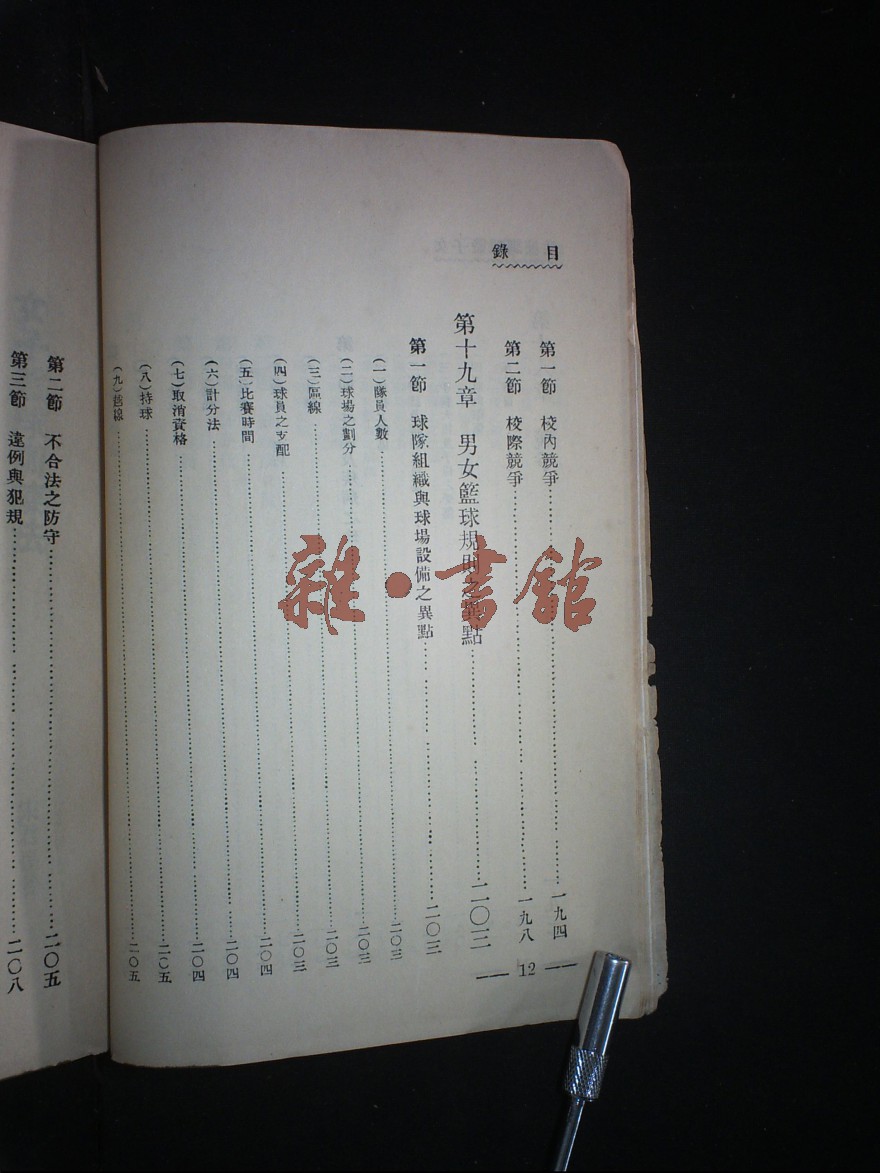 目錄
第一節 校內競爭……一九四
第二節 校際競爭……一九八
第十九章 男女籃球規則之異點……二〇三
第一節 球隊組織與球場設備之異點……二〇三
(一)隊員人數……二〇三
(二)球場之劃分……二〇三
(三)區線……二〇三
(四)球員之支配……二〇四
(五)比賽時間……二〇四
(六)計分法……二〇四
(七)取消資格……二〇五
(八)持球……二〇五
(九)線……
12
第二節 不合法之防守……二〇五
第三節 違例與犯規……二〇八
雜·書館